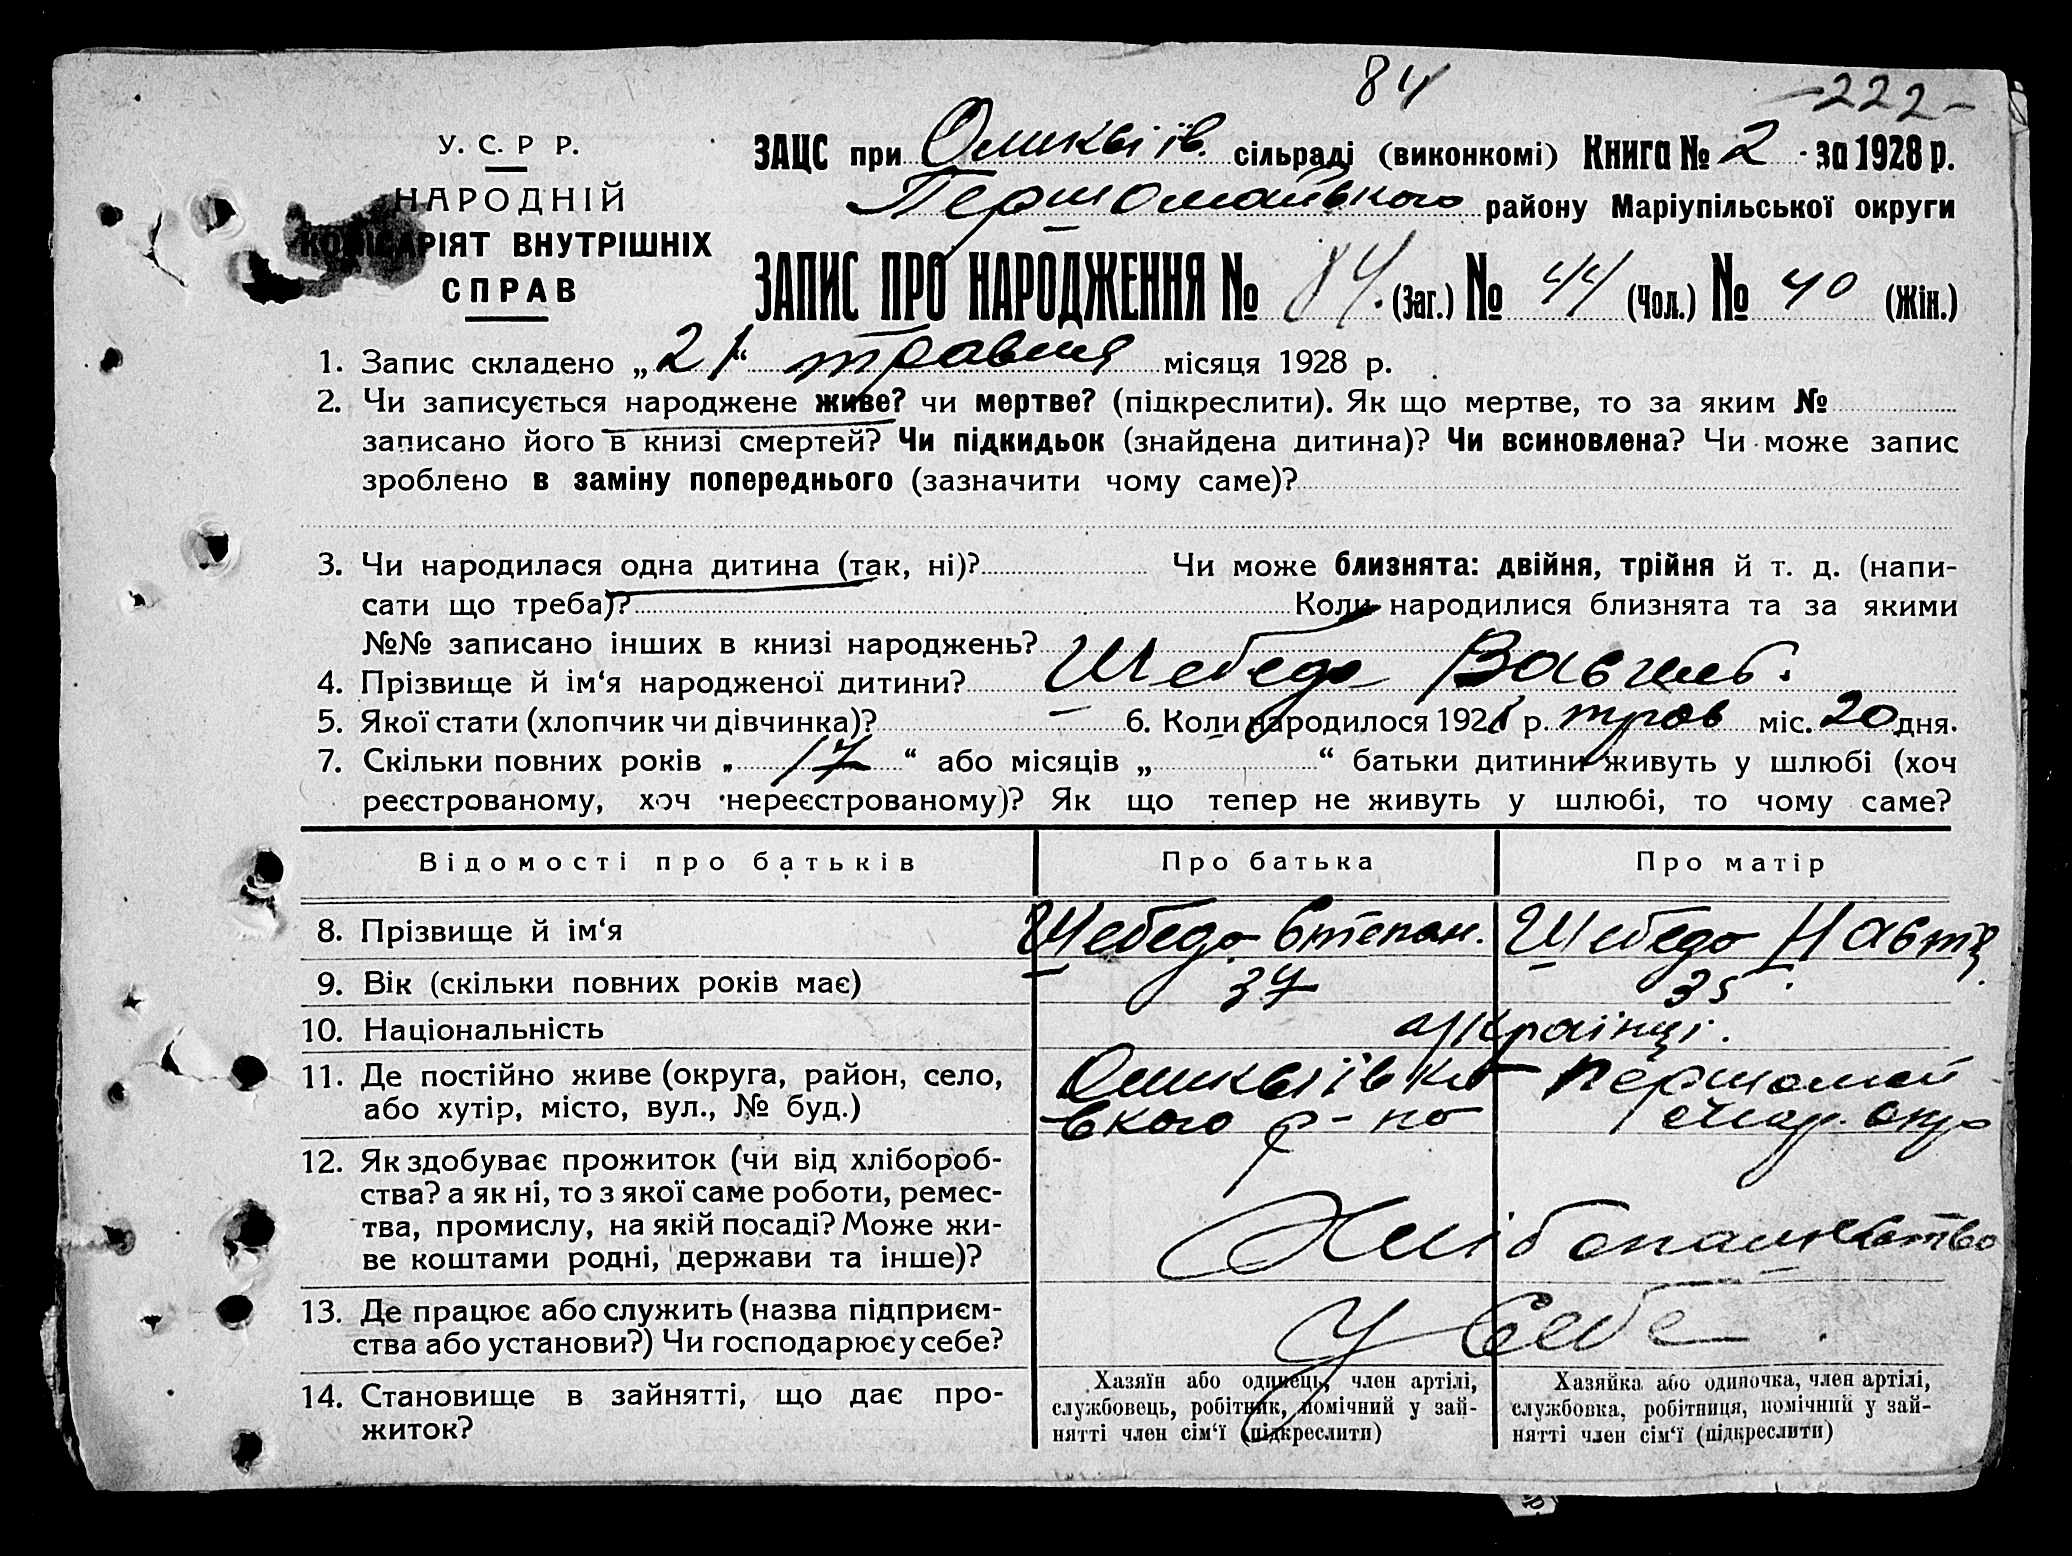 84
-222-
У. С. Р Р.
НАРОДНІЙ
КОМІСАРІЯТ ВНУТРІШНІХ
СПРАВ
ЗАЦС при сільраді (виконкомі) Книга № 2 за 1928 р.
Першомайського району Маріупільської округи
ЗАПИС ПРО НАРОДЖЕННЯ № 84 (Заг.) № 44 (Чол.) № 40 (Жін.)
1. Запис складено „21“ травня місяця 1928 р.
2. Чи записується народжене живе? чи мертве? (підкреслити). Як що мертве, то за яким №
записано його в книзі смертей? Чи підкидьок (знайдена дитина)? Чи всиновлена? Чи може запис
зроблено в заміну попереднього (зазначити чому саме)?
3. Чи народилася одна дитина (так, ні)? Чи може близнята: двійня, трійня й т. д. (напи-
сати що треба)? Коли народилися близнята та за якими
№№ записано інших в книзі народжень?
4. Прізвище й ім‘я народженої дитини? Шебедо Василь.
5. Якої стати (хлопчик чи дівчинка)? 6. Коли народилося 1928 р. трав міс. 20 дня.
7. Скільки повних років „ 17 “ або місяців „ “ батьки дитини живуть у шлюбі (хоч
реєстрованому, хоч нереєстрованому)? Як що тепер не живуть у шлюбі, то чому саме?
Відомості про батьків Про батька Про матір
8. Прізвище й ім‘я Шебедо Степан. Шебедо Наст.
9. Вік (скільки повних років має) 37 35
10. Національність українці.
11. Де постійно живе (округа, район, село, Першомай
або хутір, місто, вул., № буд.) ського р-но Мар. окр
12. Як здобуває прожиток (чи від хлібороб-
ства? а як ні, то з якої саме роботи, ремес-
тва, промислу, на якій посаді? Може жи-
ве коштами родні, держави та інше)?
13. Де працює або служить (назва підприєм- У себе.
ства або установи?) Чи господарює у себе?
14. Становище в зайнятті, що дає про-
житок?
Хазяїн або одинець, член артілі,
службовець, робітник, помічний у зай-
нятті член сім‘ї (підкреслити)
Хазяйка або одиночка, член артілі,
службовка, робітниця, помічний у зай-
нятті член сім‘ї (підкреслити)